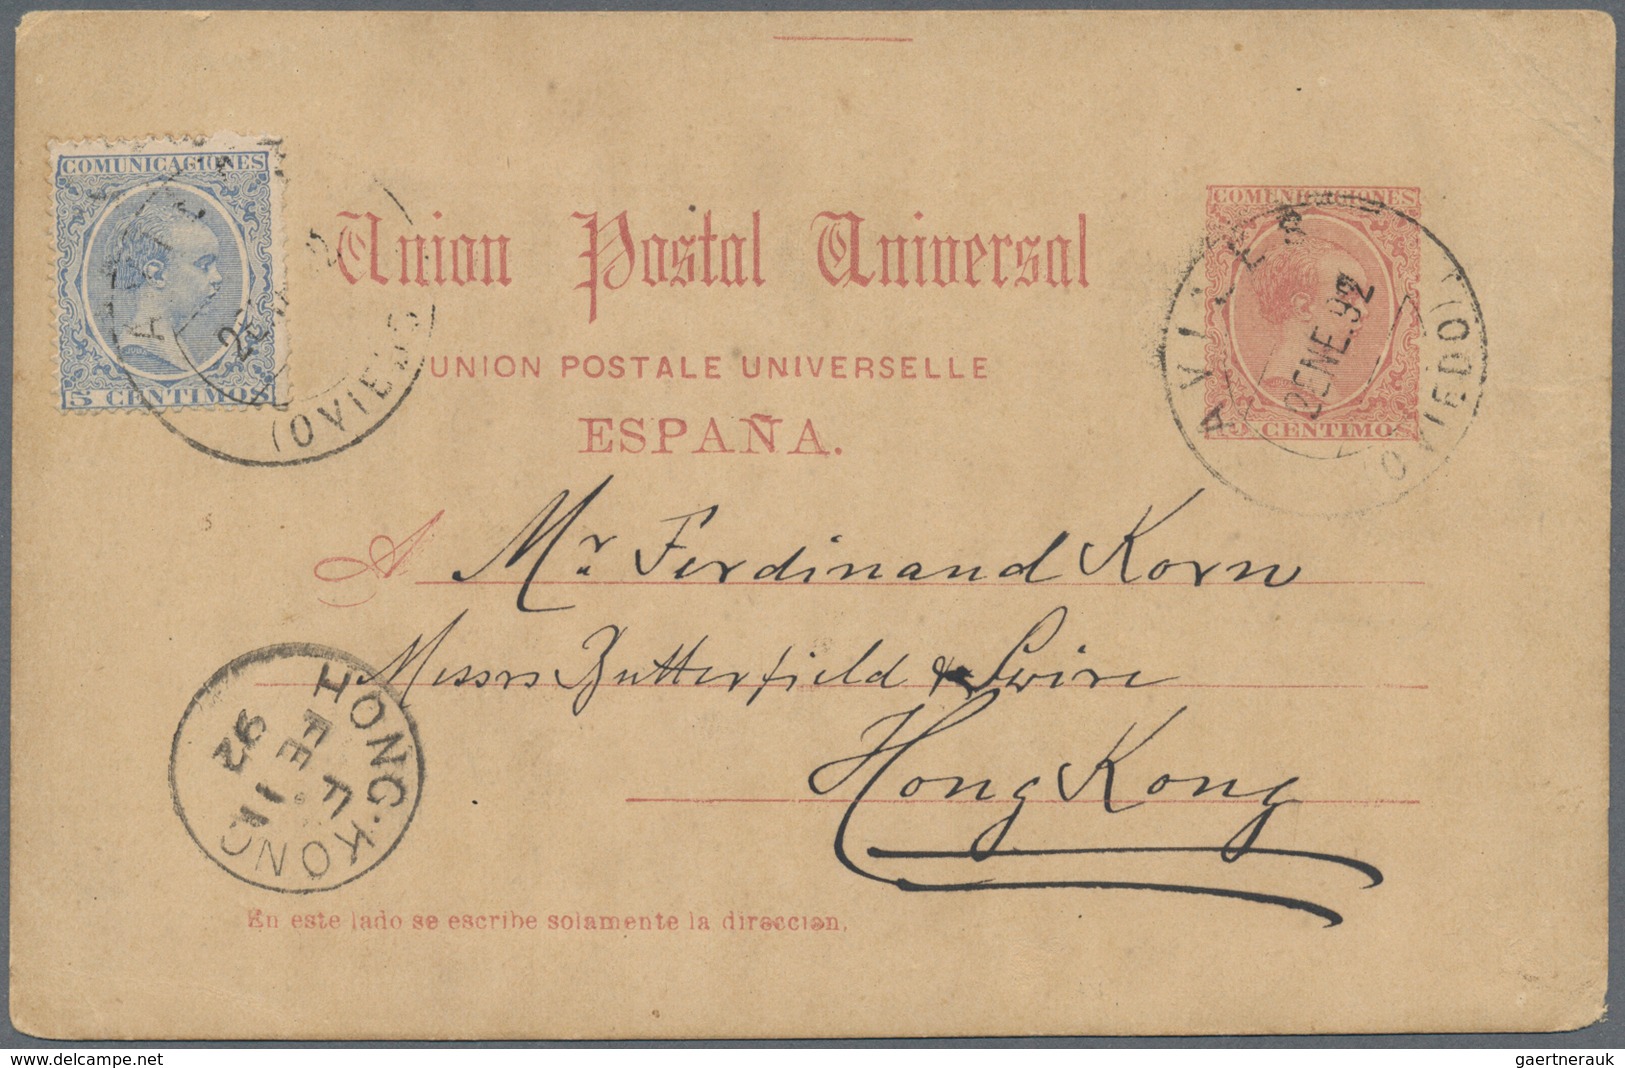 COMUNICACIONES
5 CENTIMOS
(OVIEDO)
Union Postal Universal
UNION POSTALE UNIVERSELLE
ESPAÑA.
COMUNICACIONES
10 CENTIMOS
AVILES
ENE.92
(OVIEDO)
A Mr Ferdinand Korn
Messrs Butterfield & Swire
Hong Kong
HONG·KONG
F
FE 11
92
En este lado se escribe solamente la direccion.
delcampe.net
gaertnerauk